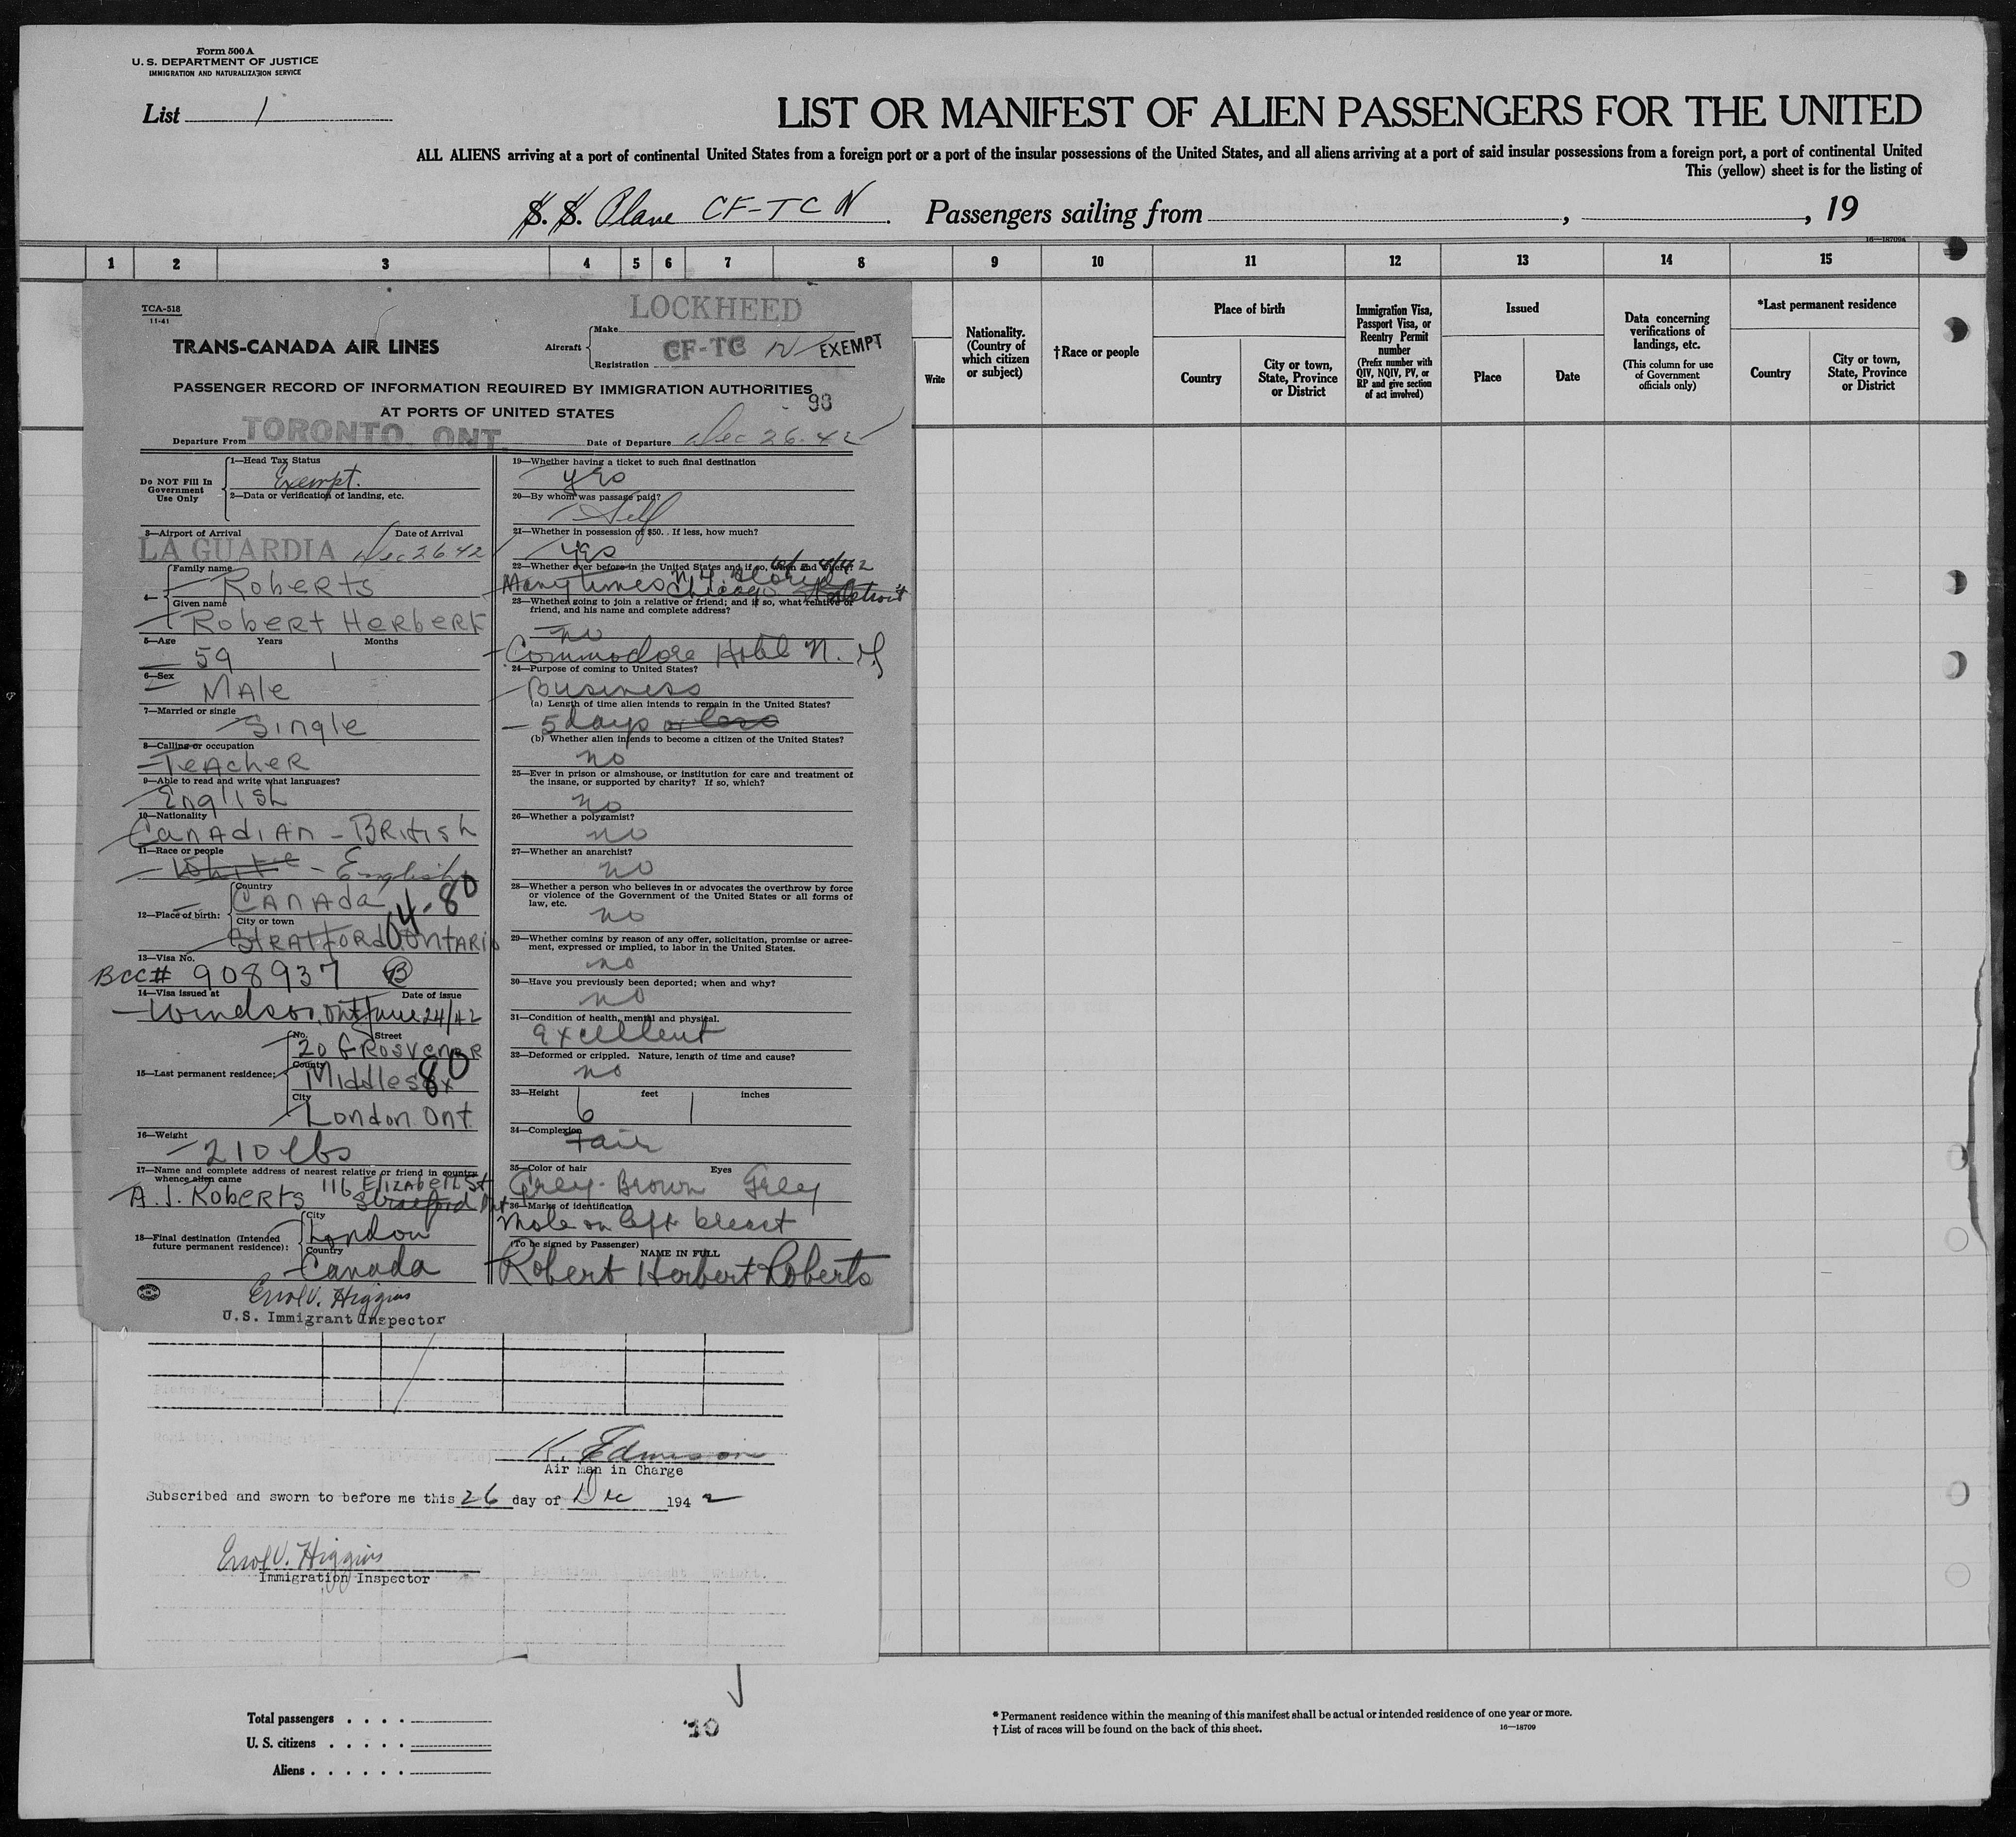 Form 500 A
U. S. DEPARTMENT OF JUSTICE
IMMIGRATION AND NATURALIZATION SERVICE
List 1
LIST OR MANIFEST OF ALIEN PASSENGERS FOR THE UNITED
ALL ALIENS arriving at a port of continental United States from a foreign port or a port of the insular possessions of the United States, and all aliens arriving at a port of said insular possessions from a foreign port, a port of continental United
This (yellow) sheet is for the listing of
S. S. Plane CF-TCN Passengers sailing from , , 19
16—18709a
1 2 3 4 5 6 7 8 9 10 11 12 13 14 15
Write
Nationality. (Country of which citizen or subject)
†Race or people
Place of birth
Country
City or town, State, Province or District
Immigration Visa, Passport Visa, or Reentry Permit number
(Prefix number with QIV, NQIV, PV, or RP and give section of act involved)
Issued
Place
Date
Data concerning verifications of landings, etc.
(This column for use of Government officials only)
*Last permanent residence
Country
City or town, State, Province or District
TCA-518
11-41
TRANS-CANADA AIR LINES
Aircraft
Make LOCKHEED
Registration CF-TC N EXEMPT
PASSENGER RECORD OF INFORMATION REQUIRED BY IMMIGRATION AUTHORITIES
AT PORTS OF UNITED STATES
93
Departure From TORONTO, ONT. Date of Departure Dec 26-42
Do NOT Fill In Government Use Only
1—Head Tax Status
Exempt.
2—Data or verification of landing, etc.
3—Airport of Arrival Date of Arrival
LA GUARDIA Dec 26 42
4—
Family name
Roberts
Given name
Robert Herbert
5—Age Years Months
59 1
6—Sex
Male
7—Married or single
Single
8—Calling or occupation
Teacher
9—Able to read and write what languages?
English
10—Nationality
Canadian - British
11—Race or people
White - English
12—Place of birth:
Country
Canada
City or town
Stratford Ontario
04-80
13—Visa No.
BCC# 908937 B
14—Visa issued at Date of issue
Windsor, Ont June 24/42
15—Last permanent residence:
No. Street
20 Grosvenor
County
Middlesex
80
City
London Ont
16—Weight
210 lbs
17—Name and complete address of nearest relative or friend in country whence alien came
A. J. Roberts 116 Elizabeth St
Stratford Ont
18—Final destination (Intended future permanent residence):
City
London
Country
Canada
Errol V. Higgins
U.S. Immigrant Inspector
19—Whether having a ticket to such final destination
yes
20—By whom was passage paid?
Self
21—Whether in possession of $50. . If less, how much?
yes
22—Whether ever before in the United States and if so, when and where?
Many times N.Y.
Chicago Detroit
23—Whether going to join a relative or friend; and if so, what relative or friend, and his name and complete address?
no
Commodore Hotel N. Y
24—Purpose of coming to United States?
Business
(a) Length of time alien intends to remain in the United States?
5 days or less
(b) Whether alien intends to become a citizen of the United States?
no
25—Ever in prison or almshouse, or institution for care and treatment of the insane, or supported by charity? If so, which?
no
26—Whether a polygamist?
no
27—Whether an anarchist?
no
28—Whether a person who believes in or advocates the overthrow by force or violence of the Government of the United States or all forms of law, etc.
no
29—Whether coming by reason of any offer, solicitation, promise or agreement, expressed or implied, to labor in the United States.
no
30—Have you previously been deported; when and why?
no
31—Condition of health, mental and physical.
excellent
32—Deformed or crippled. Nature, length of time and cause?
no
33—Height feet inches
6 1
34—Complexion
Fair
35—Color of hair Eyes
Grey-Brown Grey
36—Marks of identification
Mole on left breast
(To be signed by Passenger)
NAME IN FULL
Robert Herbert Roberts
K. Edmison
Air Man in Charge
Subscribed and sworn to before me this 26 day of Dec 1942
Errol V. Higgins
Immigration Inspector
Total passengers . . . .
U. S. citizens . . . . .
Aliens . . . . . .
10
* Permanent residence within the meaning of this manifest shall be actual or intended residence of one year or more.
† List of races will be found on the back of this sheet.
16—18709